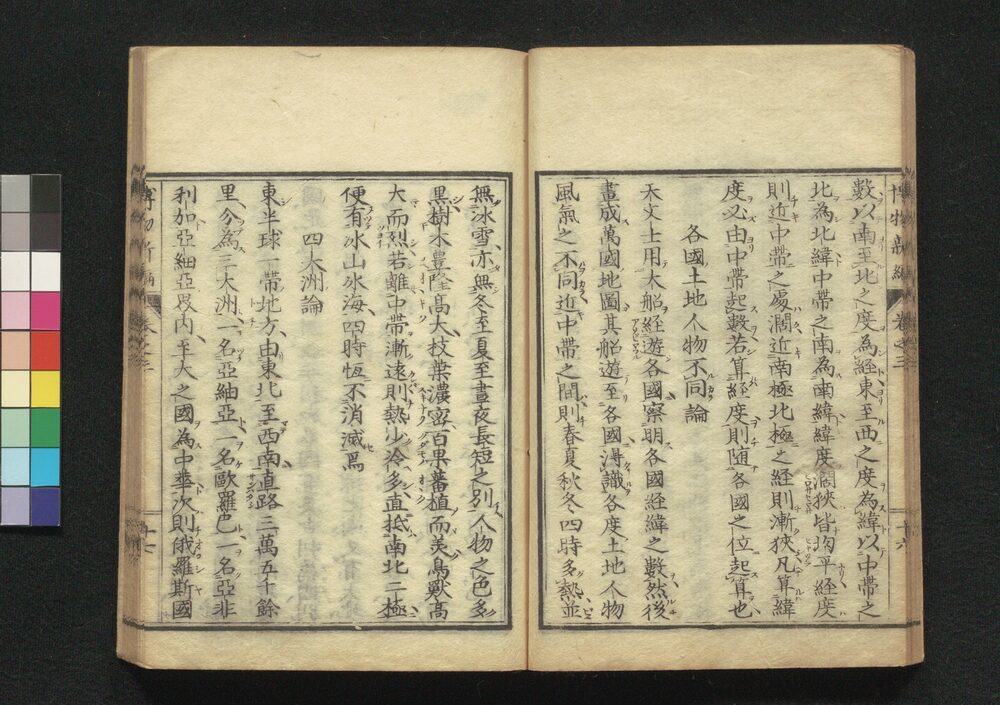 數以南至北之度為經東至西之度為緯以中帶之
北為北緯中帶之南為南緯緯度濶狹皆均平經度
則近中帶之處濶近南極北極之經則漸狹凡算緯
度必由中帶起數若算經度則随各國之位起算也
各國土地人物不同論
天文士用大船經遊各國察明各國經緯之數然後
畫成萬國地圖其船遊至各國淂識各度土地人物
風氣之不同近中帶之間則春夏秋冬四時多熱並
無冰雪亦無冬至夏至晝夜長短之別人物之色多
黒樹木豊隆髙大枝葉濃密百果蕃植而美鳥獸髙
大而烈若離中帶漸遠則熱少冷多直抵南北二極
便有冰山冰海四時恆不消滅焉
四大洲論
東半球一帶地方由東北至西南直路三萬五千餘
里分為三大洲一名亞細亞一名歐羅巴一名亞非
利加亞細亞界内至大之國為中華次則俄羅斯國
博物新編
卷之三
十六